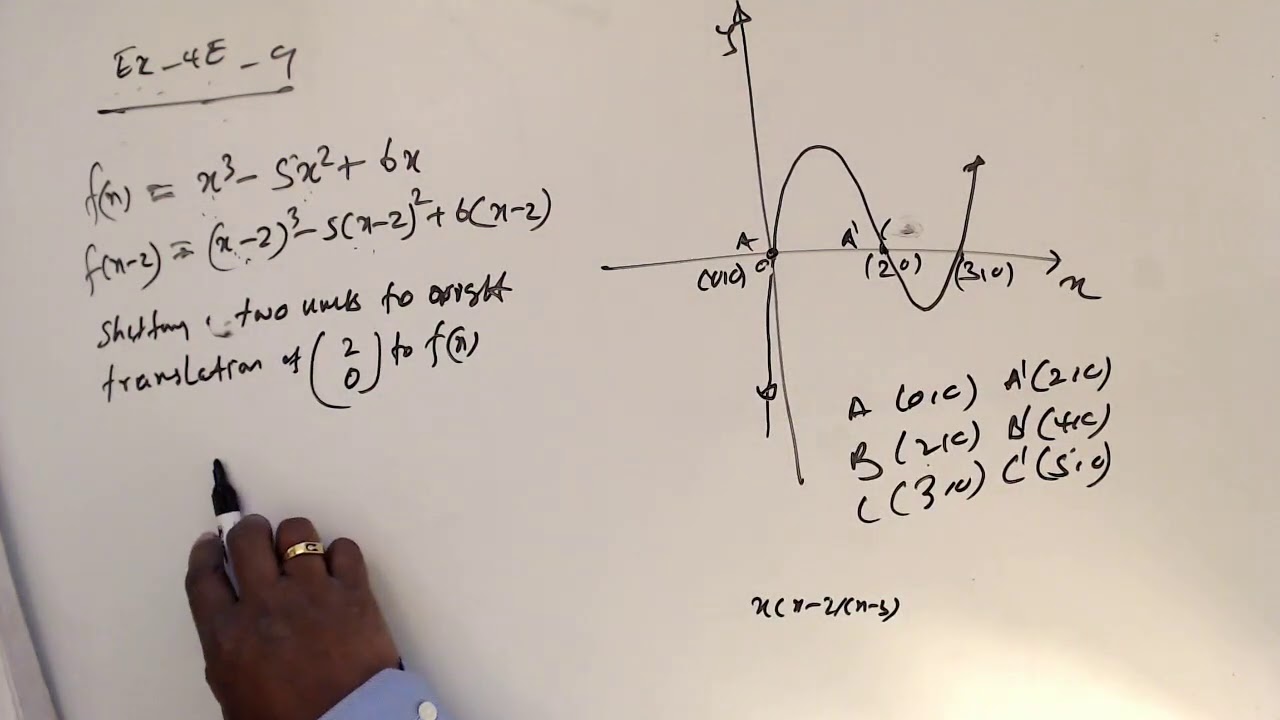 Ex - 4E - 9
f(x) = x³ - 5x² + 6x
f(x-2) = (x-2)³ - 5(x-2)² + 6(x-2)
shifting two units to right
translation of (2 0) to f(x)
y
A A'
(0,0) 0 (2,0) (3,0)
x
A (0,0) A'(2,0)
B (2,0) B'(4,0)
C (3,0) C'(5,0)
x(x-2)(x-3)